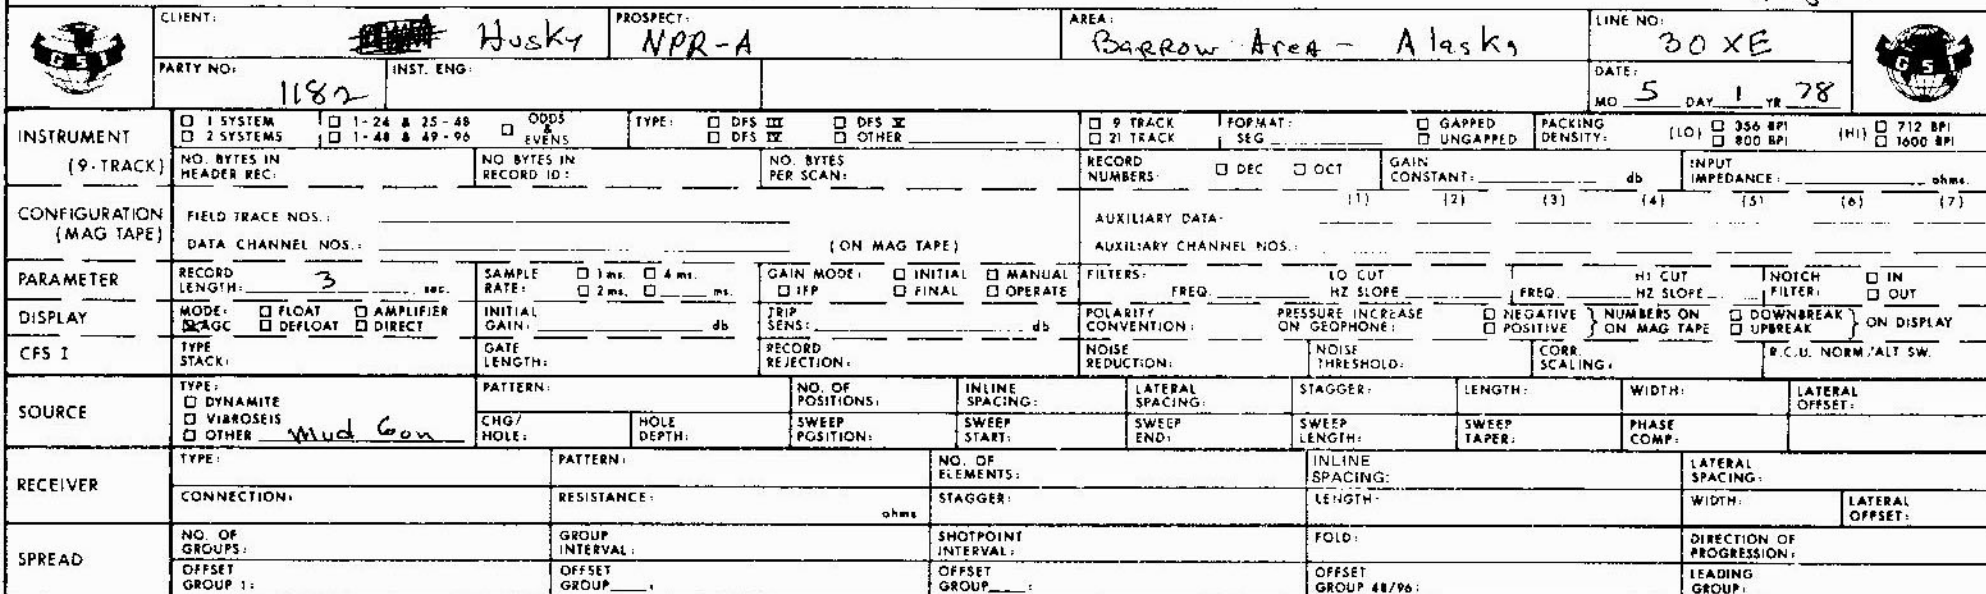 CLIENT: Husky PROSPECT: NPR-A AREA: Barrow Area - Alaska LINE NO: 30 XE
GSI GSI
PARTY NO: 1182 INST. ENG: DATE: MO 5 DAY 1 YR 78
INSTRUMENT (9-TRACK) ☐ 1 SYSTEM ☐ 1-24 & 25-48 ☐ ODDS & EVENS TYPE: ☐ DFS III ☐ DFS V ☐ 9 TRACK FORMAT: ☐ GAPPED PACKING DENSITY: (LO) ☐ 356 BPI (HI) ☐ 712 BPI
☐ 2 SYSTEMS ☐ 1-48 & 49-96 ☐ DFS IV ☐ OTHER ☐ 21 TRACK SEG ☐ UNGAPPED ☐ 800 BPI ☐ 1600 BPI
NO. BYTES IN HEADER REC: NO BYTES IN RECORD ID: NO. BYTES PER SCAN: RECORD NUMBERS: ☐ DEC ☐ OCT GAIN CONSTANT: db INPUT IMPEDANCE: ohms.
CONFIGURATION (MAG TAPE) FIELD TRACE NOS.: AUXILIARY DATA: (1) (2) (3) (4) (5) (6) (7)
DATA CHANNEL NOS.: (ON MAG TAPE) AUXILIARY CHANNEL NOS.:
PARAMETER RECORD LENGTH: 3 sec. SAMPLE RATE: ☐ 1 ms. ☐ 4 ms. ☐ 2 ms. ☐ ms. GAIN MODE: ☐ INITIAL ☐ MANUAL ☐ IFP ☐ FINAL ☐ OPERATE FILTERS: LO CUT FREQ. HZ SLOPE HI CUT FREQ. HZ SLOPE NOTCH FILTER: ☐ IN ☐ OUT
DISPLAY MODE: ☐ FLOAT ☐ AMPLIFIER ☒ AGC ☐ DEFLOAT ☐ DIRECT INITIAL GAIN: db TRIP SENS: db POLARITY CONVENTION: PRESSURE INCREASE ON GEOPHONE: ☐ NEGATIVE ☐ POSITIVE } NUMBERS ON MAG TAPE ☐ DOWNBREAK ☐ UPBREAK } ON DISPLAY
CFS I TYPE STACK: GATE LENGTH: RECORD REJECTION: NOISE REDUCTION: NOISE THRESHOLD: CORR. SCALING: R.C.U. NORM/ALT SW.
SOURCE TYPE: ☐ DYNAMITE ☐ VIBROSEIS ☐ OTHER Mud Gon PATTERN: NO. OF POSITIONS: INLINE SPACING: LATERAL SPACING: STAGGER: LENGTH: WIDTH: LATERAL OFFSET:
CHG/HOLE: HOLE DEPTH: SWEEP POSITION: SWEEP START: SWEEP END: SWEEP LENGTH: SWEEP TAPER: PHASE COMP:
RECEIVER TYPE: PATTERN: NO. OF ELEMENTS: INLINE SPACING: LATERAL SPACING:
CONNECTION: RESISTANCE: ohms STAGGER: LENGTH: WIDTH: LATERAL OFFSET:
SPREAD NO. OF GROUPS: GROUP INTERVAL: SHOTPOINT INTERVAL: FOLD: DIRECTION OF PROGRESSION:
OFFSET GROUP 1: OFFSET GROUP : OFFSET GROUP : OFFSET GROUP 48/96: LEADING GROUP: